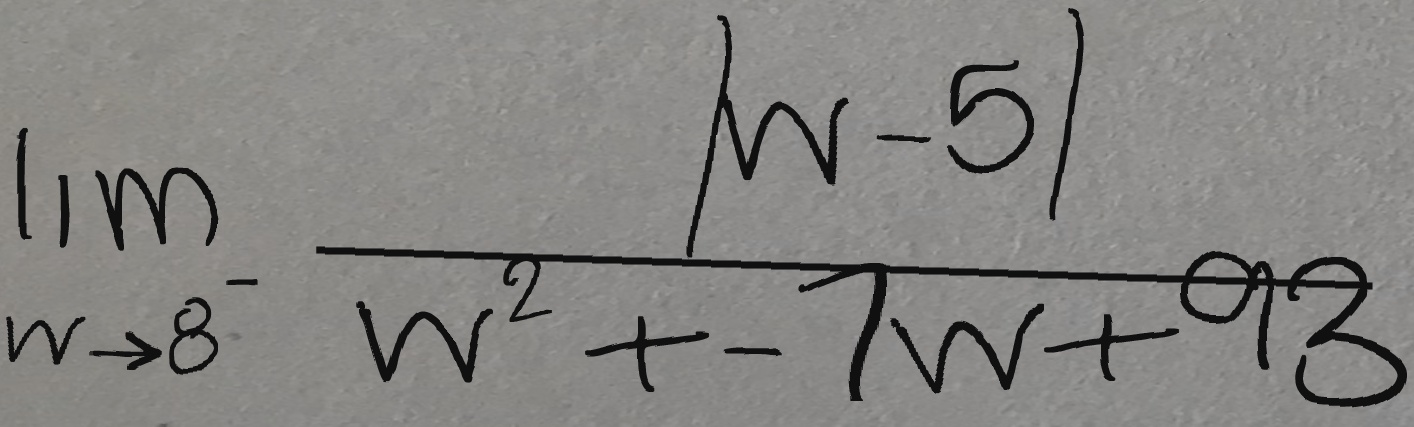 \lim_{w \to 8^-} \frac{|w-5|}{w^2+-7w+93}